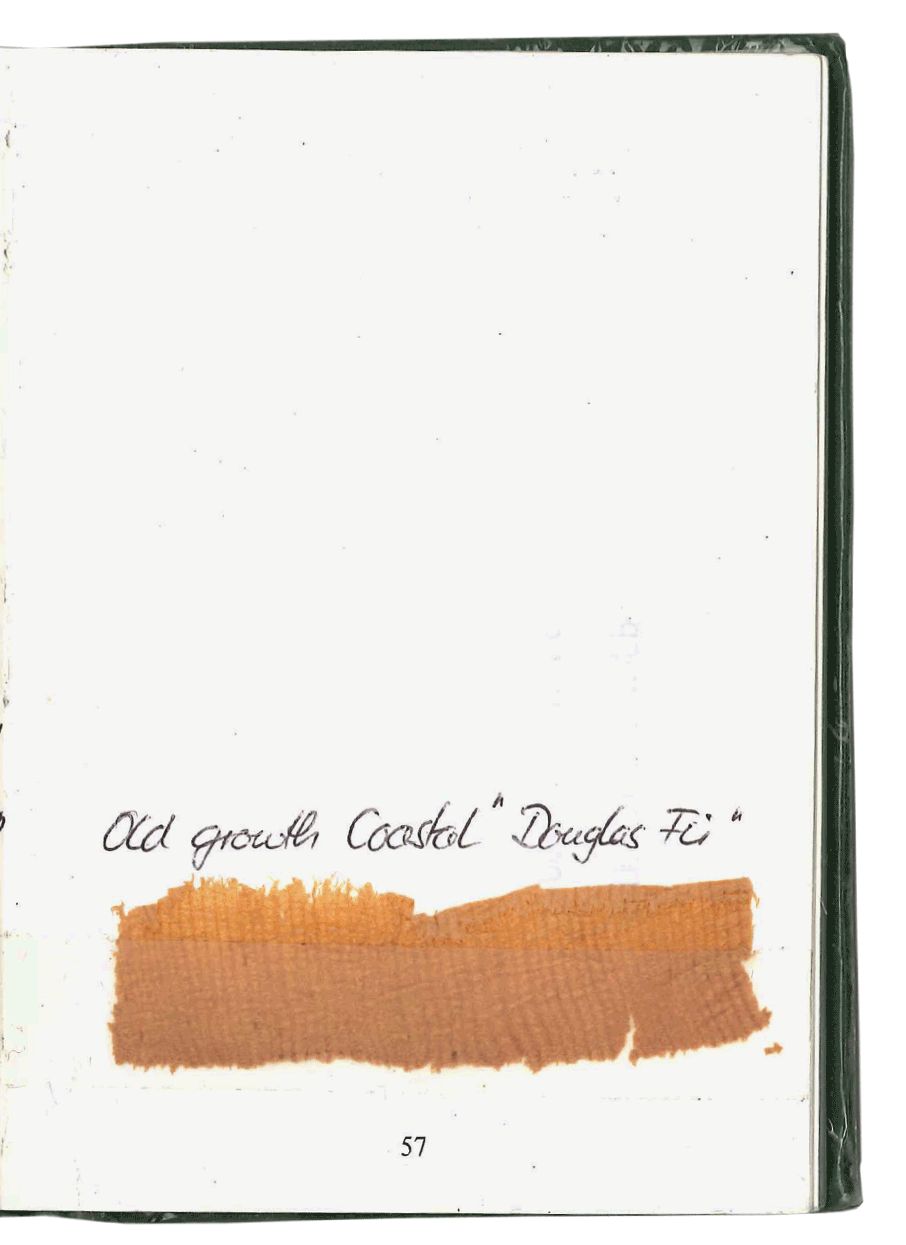 Old growth Coastal "Douglas Fir"
57